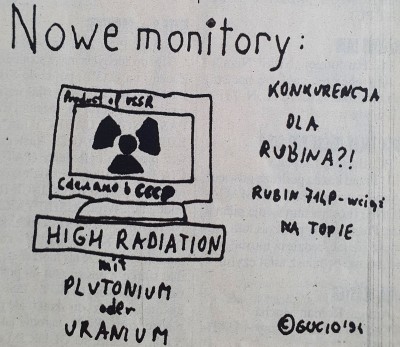 Nowe monitory:
Product of USSR
Сделано в СССР
HIGH RADIATION
mit
PLUTONIUM
oder
URANIUM
KONKURENCJA
DLA
RUBINA?!
RUBIN 714P - wciąż
NA TOPIE
©GUCIO'94